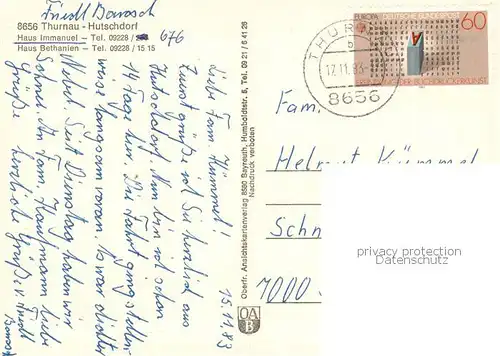 Friedl Barosch
8656 Thurnau - Hutschdorf
Haus Immanuel - Tel. 09228 / 676
Haus Bethanien - Tel. 09228 / 15 15
15.11.83
Liebe Fam. Kümmel!
Zuerst grüße ich Sie herzlich aus
Hutschdorf. Nun bin ich schon
14 Tage hier. Die Fahrt ging stellen-
weise langsam voran, da war dichter
Nebel. Seit Dienstag haben wir
Schnee. An Fam. Kaufmann liebe
Grüße. Herzliche Grüße v. Friedl
Barosch
Oberfr. Ansichtskartenverlag 8580 Bayreuth, Humboldtstr. 5, Tel. 09 21 / 6 41 26
Nachdruck verboten
OA
B
THURN
b
17.11.83
8656
EUROPA DEUTSCHE BUNDESPOST
60
BUCHDRUCKERKUNST
Fam.
Helmut Kümmel
Schn
7000
privacy protection
Datenschutz